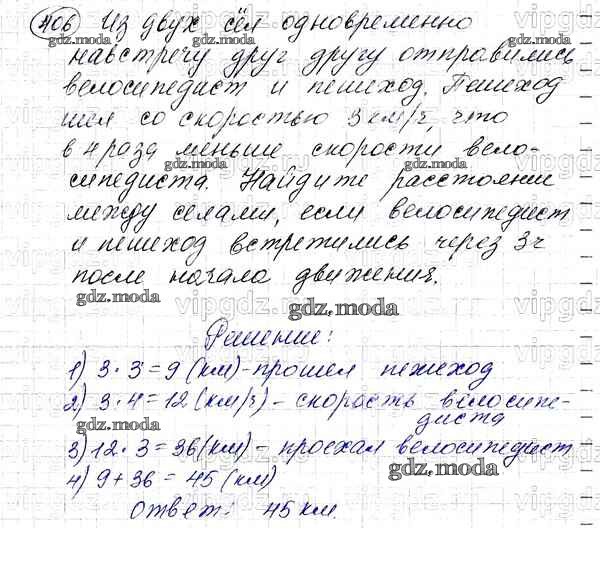 406 Из двух сёл одновременно
навстречу друг другу отправились
велосипедист и пешеход. Пешеход
шел со скоростью 3 км/ч, что
в 4 раза меньше скорости вело-
сипедиста. Найдите расстояние
между селами, если велосипедист
и пешеход встретились через 3ч
после начала движения.
gdz.moda
Решение:
1) 3 · 3 = 9 (км) - прошел пешеход
2) 3 · 4 = 12 (км/ч) - скорость велосипе-
диста
3) 12 · 3 = 36 (км) - проехал велосипедист
4) 9 + 36 = 45 (км)
Ответ: 45 км.